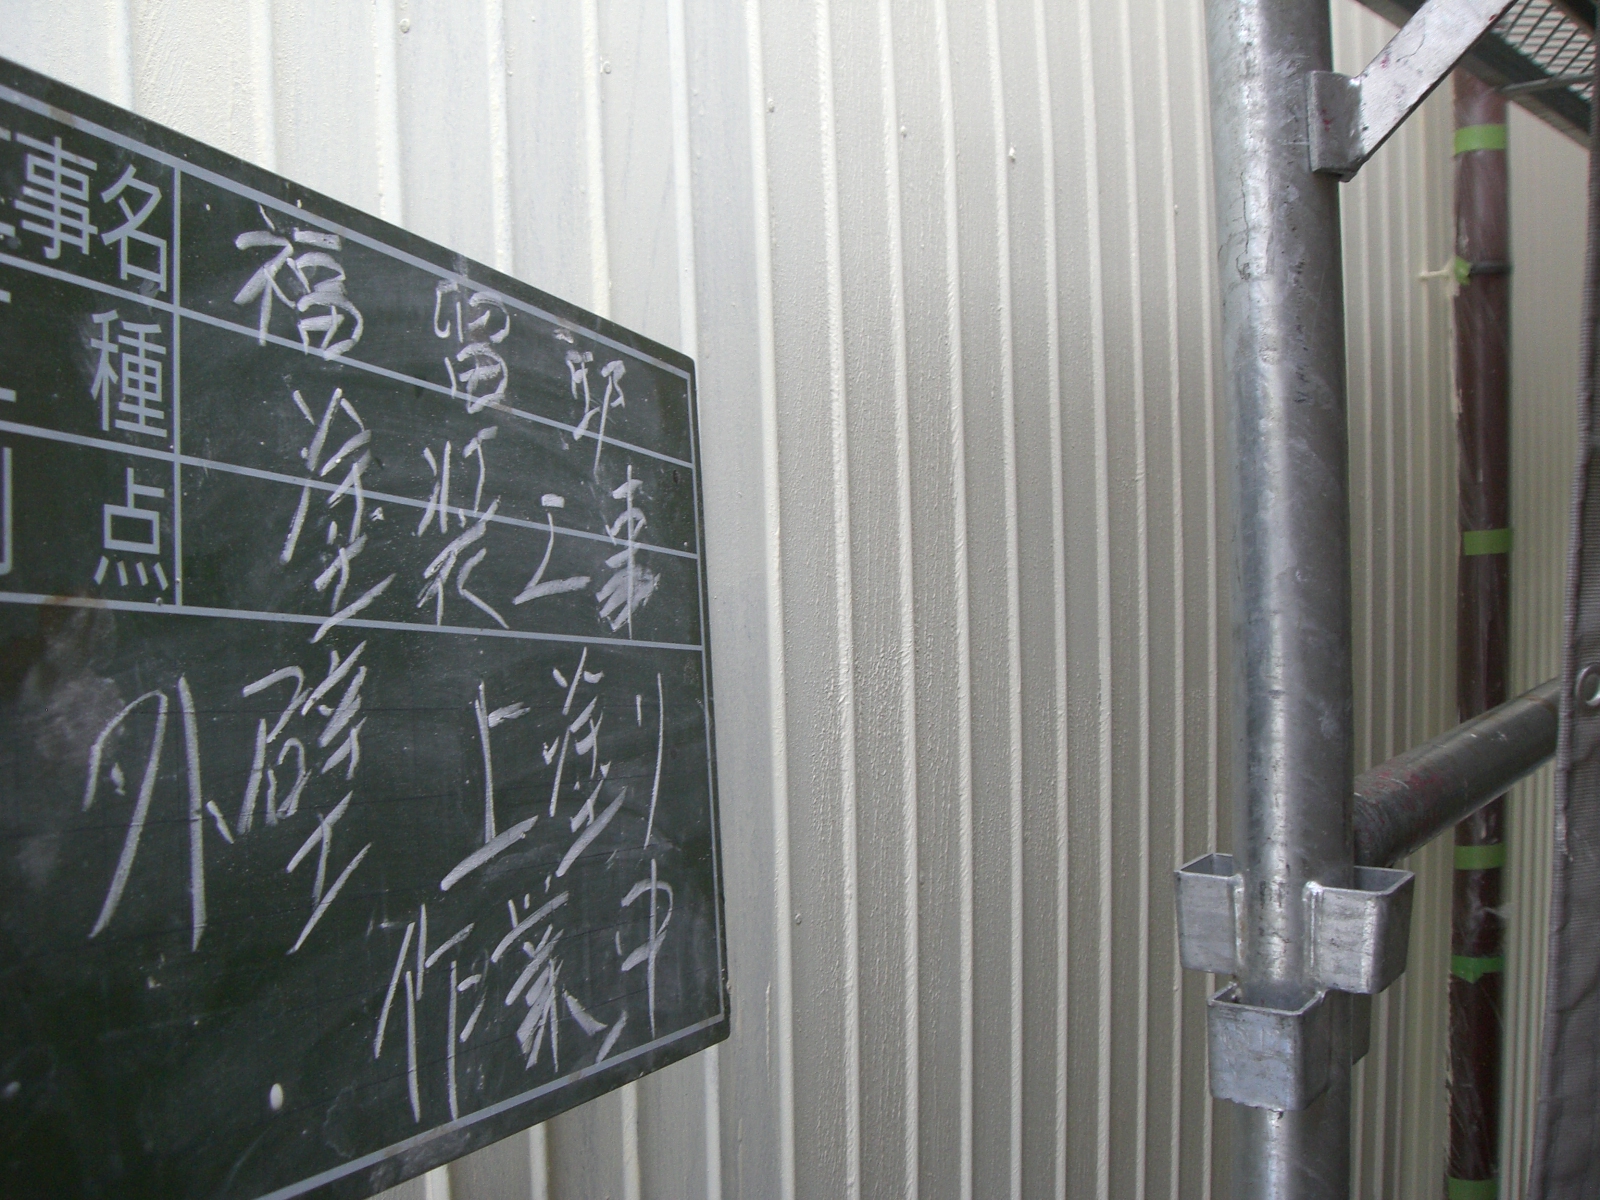 工事名 福留邸
工種 塗装工事
測点
外壁 上塗り
作業中